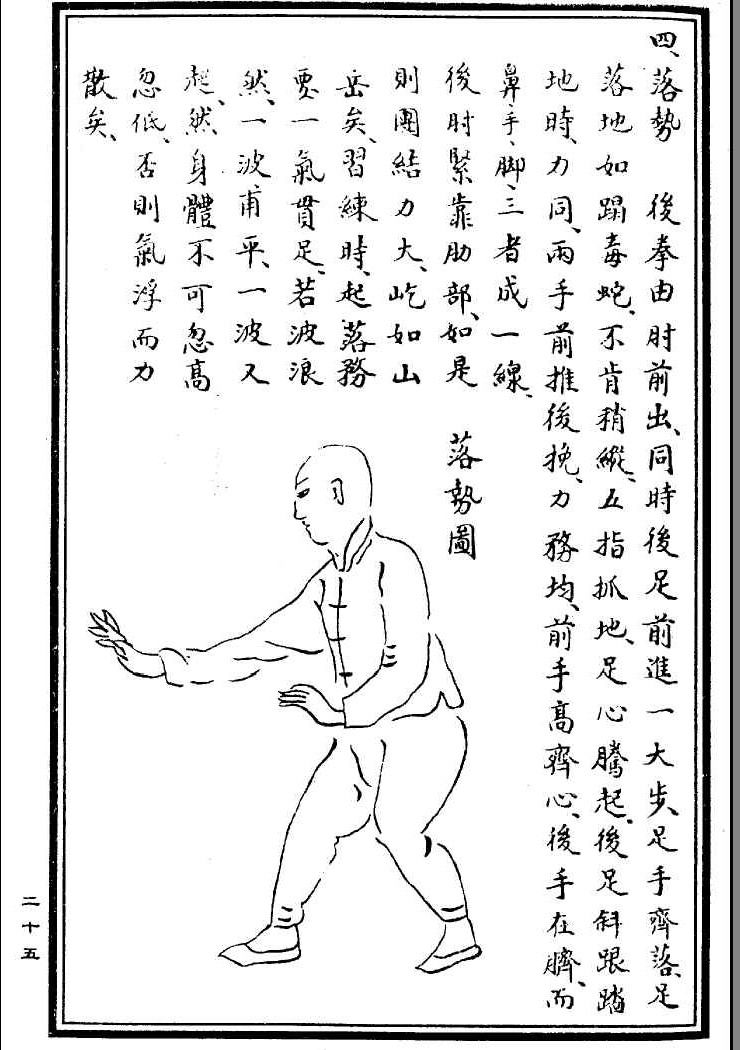 四、落勢　後拳由肘前出、同時後足前進一大步、足手齊落、足
落地如蹋毒蛇、不肯稍縱、五指抓地、足心騰起、後足斜跟踏
地時、力同、兩手前推後挽、力務均、前手高齊心、後手在臍、而
鼻、手、脚、三者成一線、
後肘緊靠肋部、如是
則團結力大、屹如山
岳矣、習練時、起落務
要一氣貫足、若波浪
然、一波甫平、一波又
起、然身體不可忽高
忽低、否則氣浮而力
散矣、
落勢圖
二十五